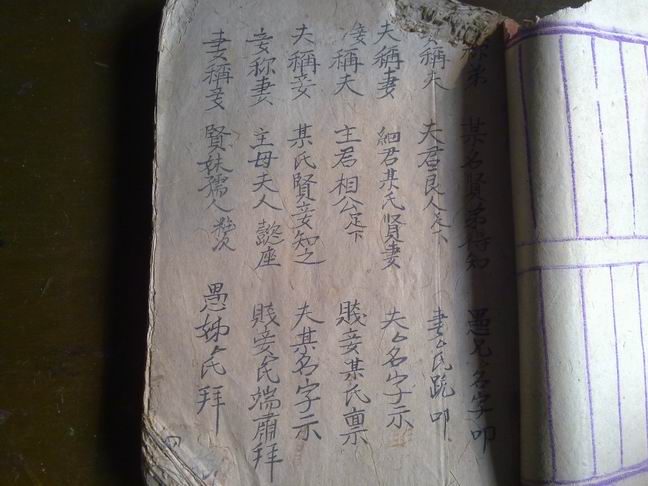 称弟 某名賢弟 知 愚兄厶名字叩
稱夫 夫君良人足下 妻厶氏跪叩
夫稱妻 細君某氏賢妻 夫厶名字示
妾稱夫 主君相公足下 賤妾某氏禀
夫稱妾 某氏賢妾知之 夫某名字示
妾称妻 主母夫人懿座 賤妾厶氏端肅拜
妻稱妾 賢妹孺人妝次 愚姊厶氏拜